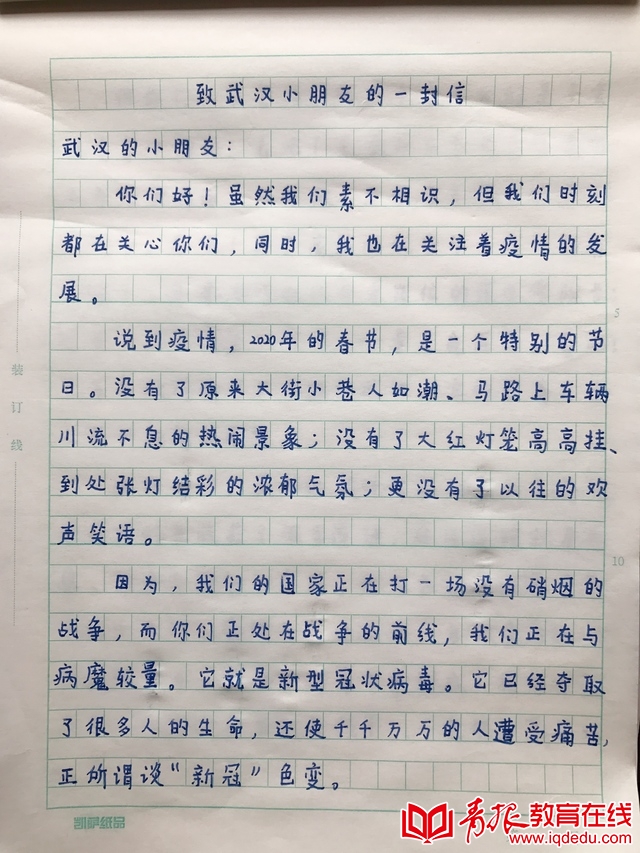 致武汉小朋友的一封信
武汉的小朋友：
你们好！虽然我们素不相识，但我们时刻
都在关心你们，同时，我也在关注着疫情的发
展。
说到疫情，2020年的春节，是一个特别的节
日。没有了原来大街小巷人如潮、马路上车辆
川流不息的热闹景象；没有了大红灯笼高高挂、
到处张灯结彩的浓郁气氛；更没有了以往的欢
声笑语。
因为，我们的国家正在打一场没有硝烟的
战争，而你们正处在战争的前线，我们正在与
病魔较量。它就是新型冠状病毒。它已经夺取
了很多人的生命，还使千千万万的人遭受痛苦，
正所谓谈“新冠”色变。
装订线
5
10
凯萨纸品
青报教育在线
www.iqdedu.com